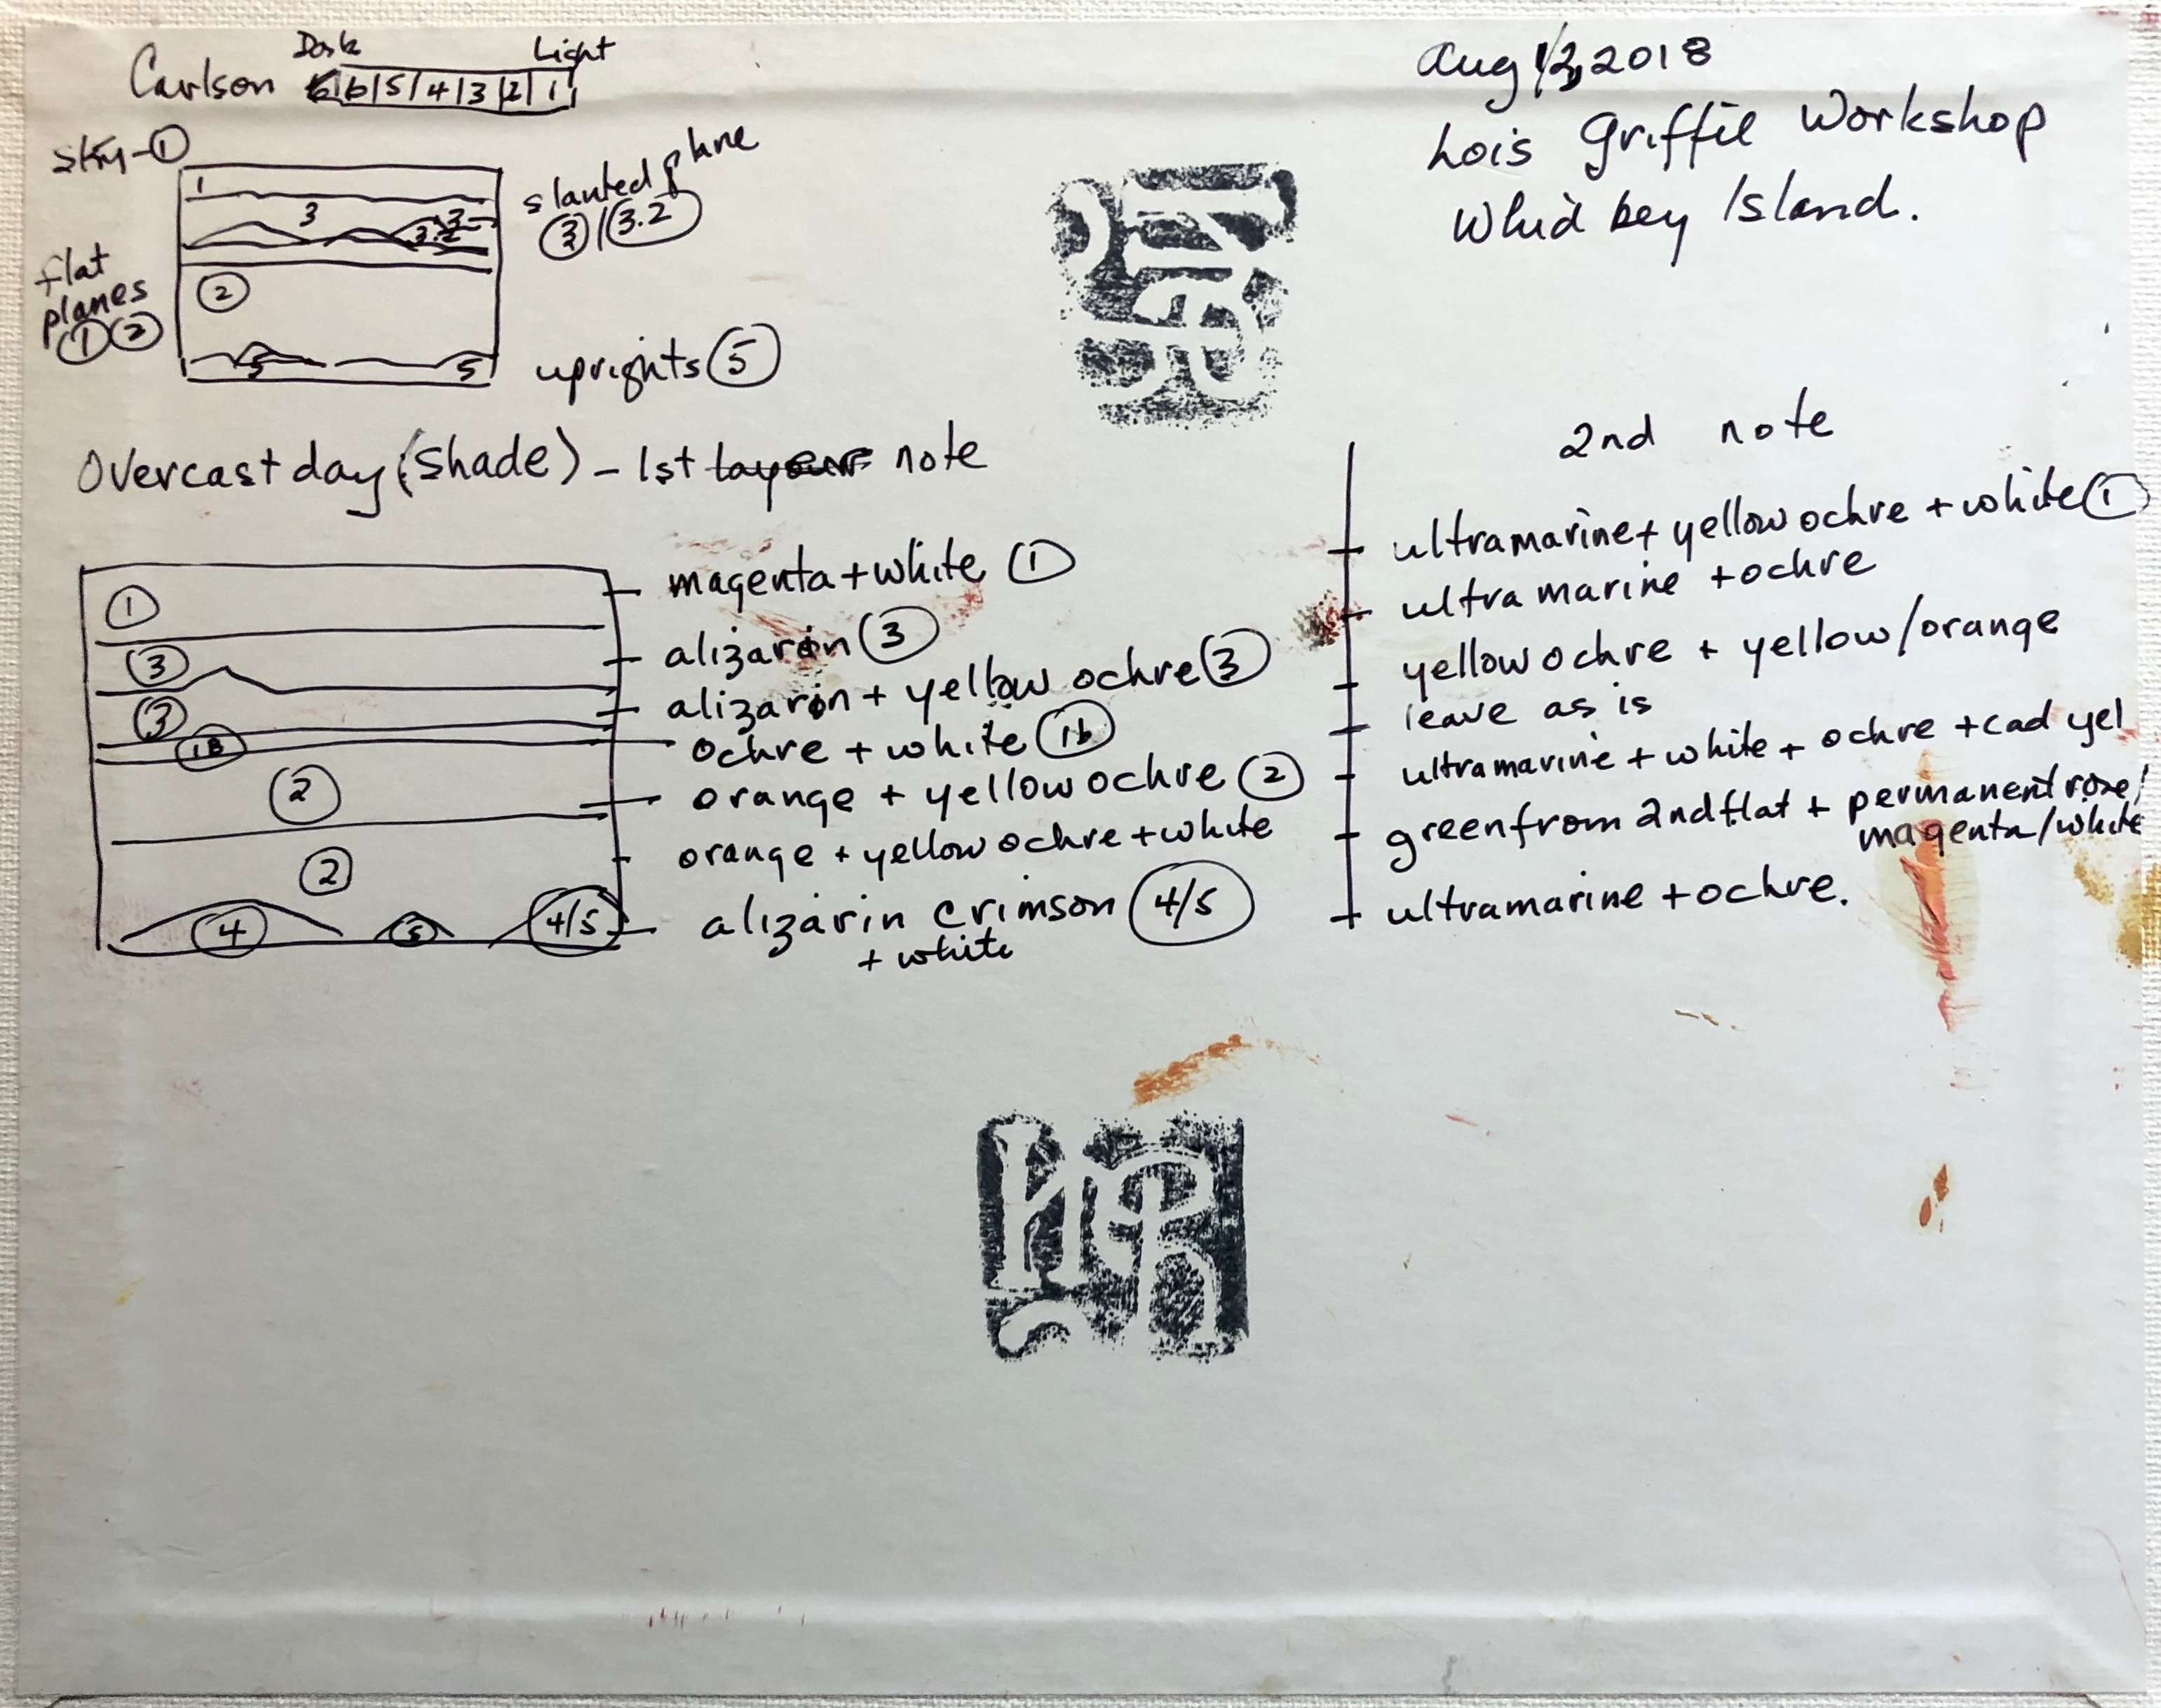 Dark Light
Carlson 6 5 4 3 2 1
Aug 12, 2018
Lois Griffel Workshop
Whidbey Island.
sky-①
1
3
3
3.2
②
5
5
slanted plane
③/3.2
flat
planes
① ②
uprights ⑤
Overcast day (Shade) - 1st note
①
③
③
1B
②
②
4
5
4/5
magenta + white ①
alizarin ③
alizarin + yellow ochre ③
ochre + white 1b
orange + yellow ochre ②
orange + yellow ochre + white
alizarin crimson 4/5
+ white
2nd note
ultramarine + yellow ochre + white ①
ultra marine + ochre
yellow ochre + yellow/orange
leave as is
ultramarine + white + ochre + cad yel
green from 2nd flat + permanent rose/
magenta/white
ultramarine + ochre.